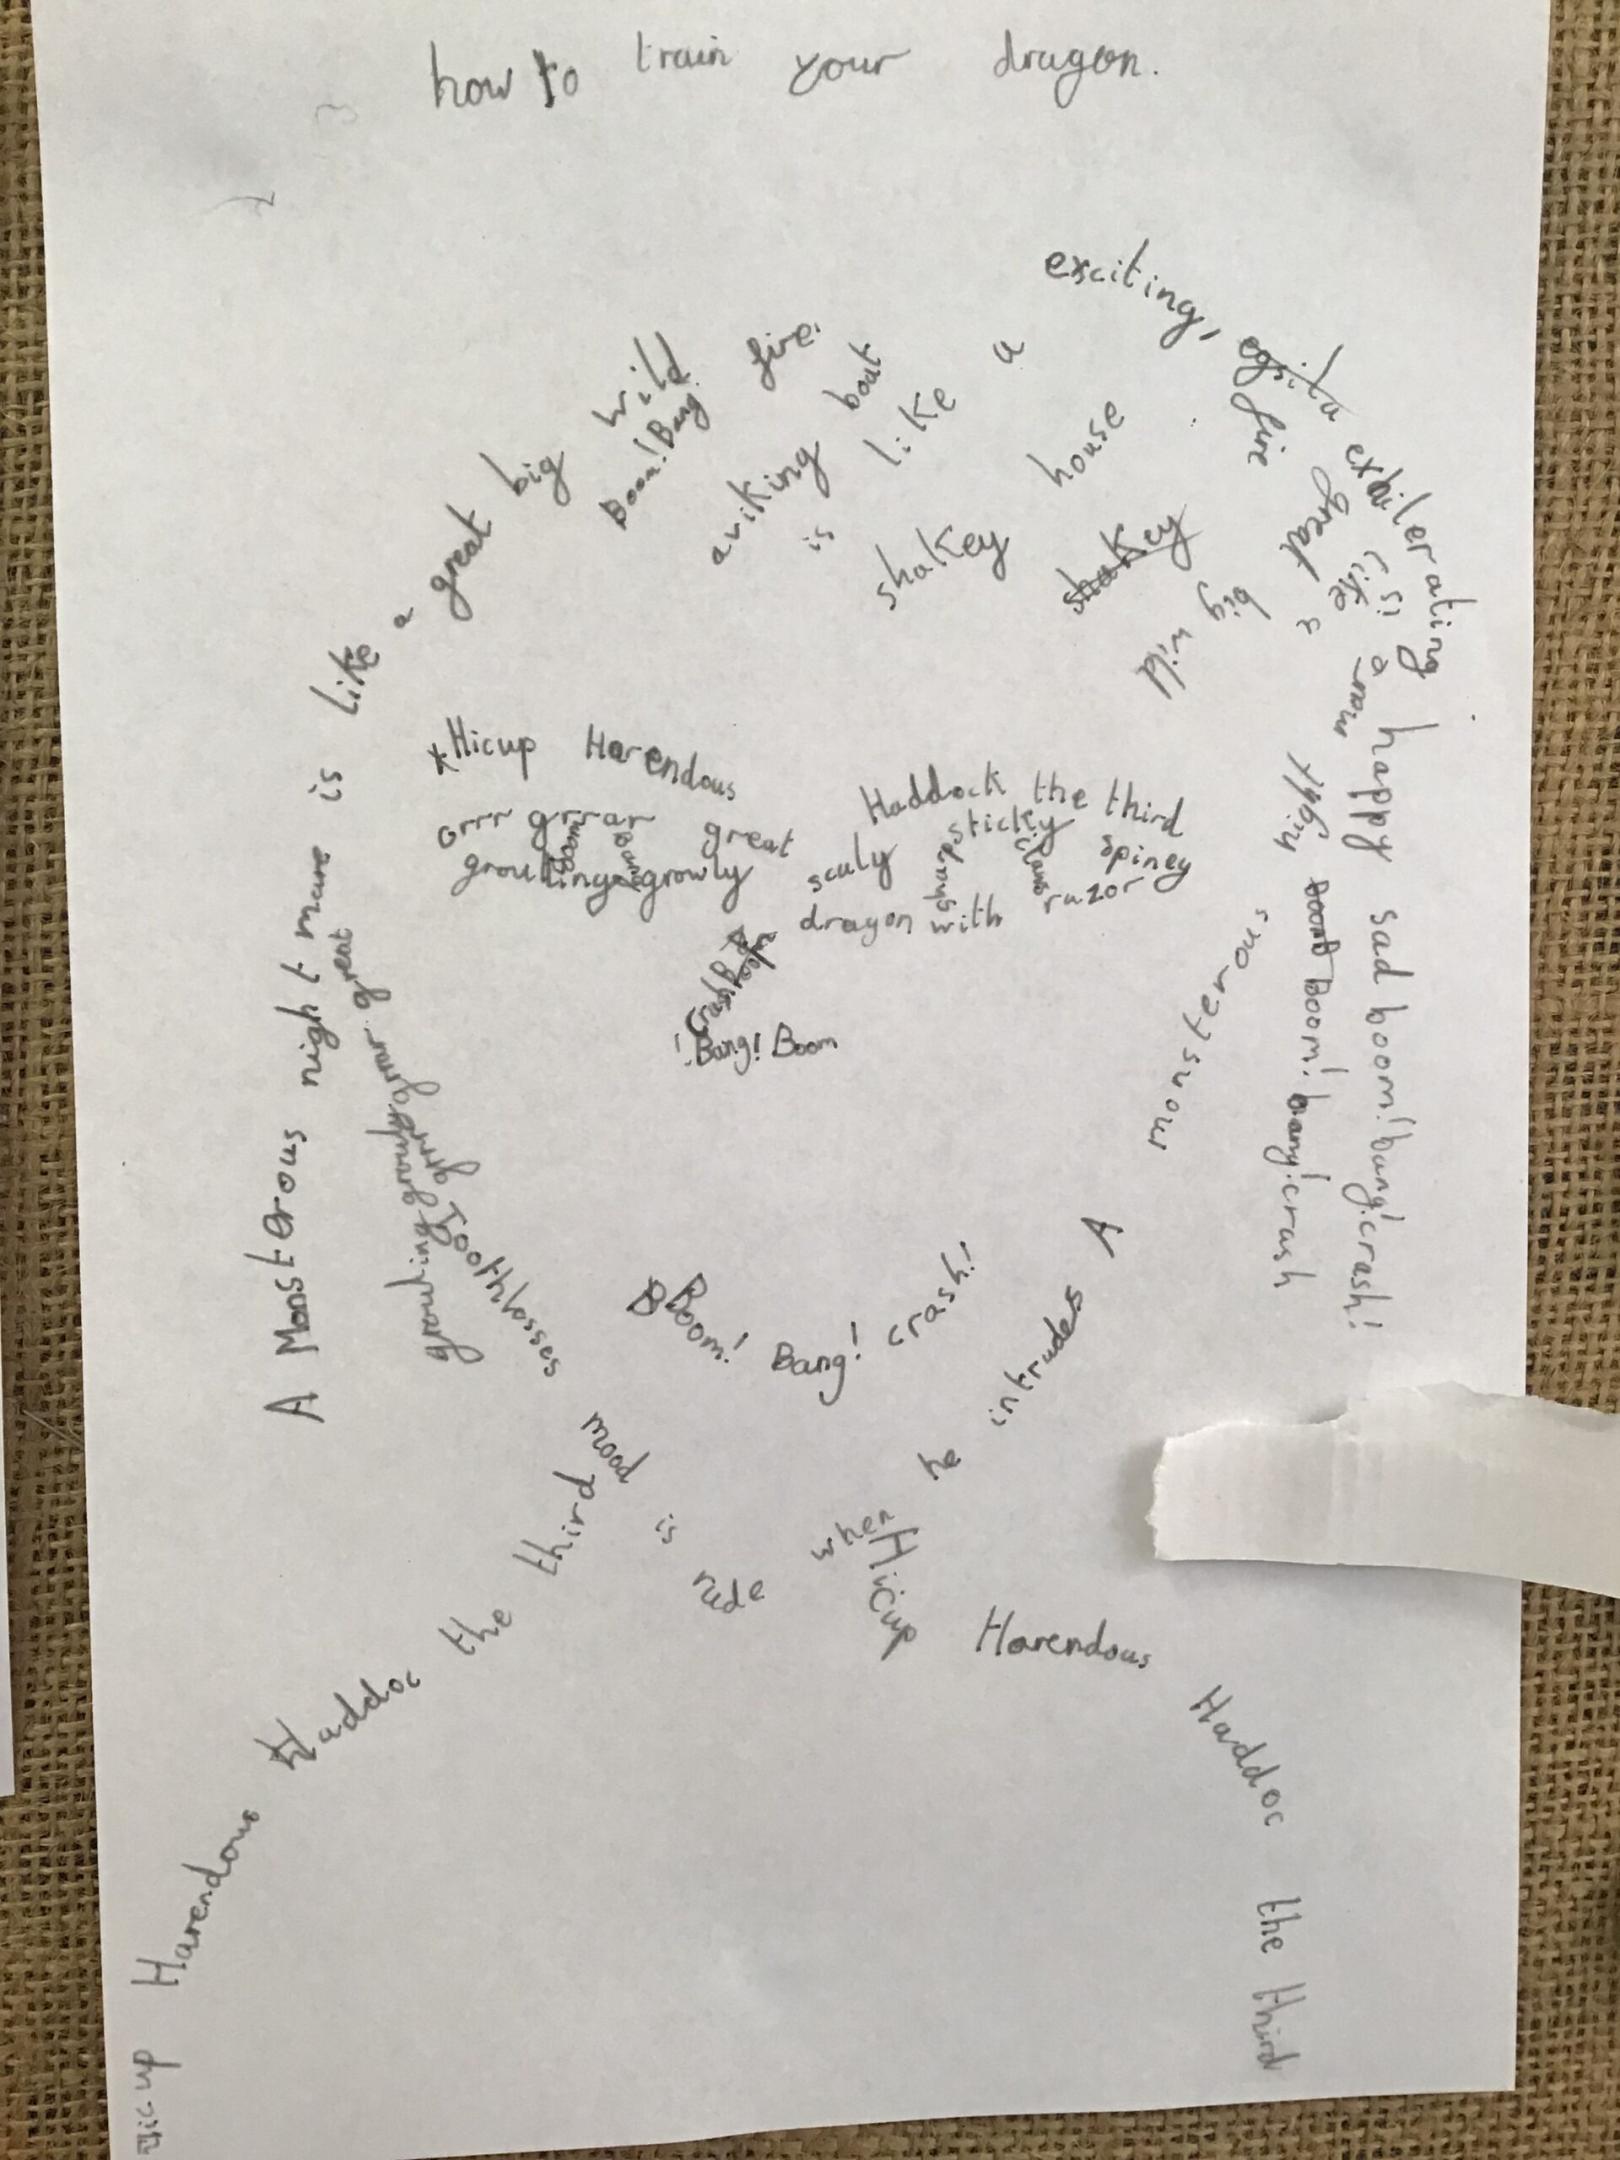 how to train your dragon.
A Monsterous night mare is like a great big wild fire.
Boom! Bang!
a viking boat
is like a
shakey house
shakey
exciting, exhilerating happy sad boom! bang! crash!
A monsterous night mare is like a great big wild fire
boom! bang! crash
*Hicup Harendous Haddock the third
Grrr grrrar great scaly sticky spiney
growling growly dragon with razor
sharp claws
Boom Bang
Crash
! Bang! Boom
great
grrrar
growling growly grrr
Boom! Bang! crash!
Toothlosses mood is rude when he intrudes
Hicup Harendous Haddoc the third
Hicup Harendous Haddoc the third